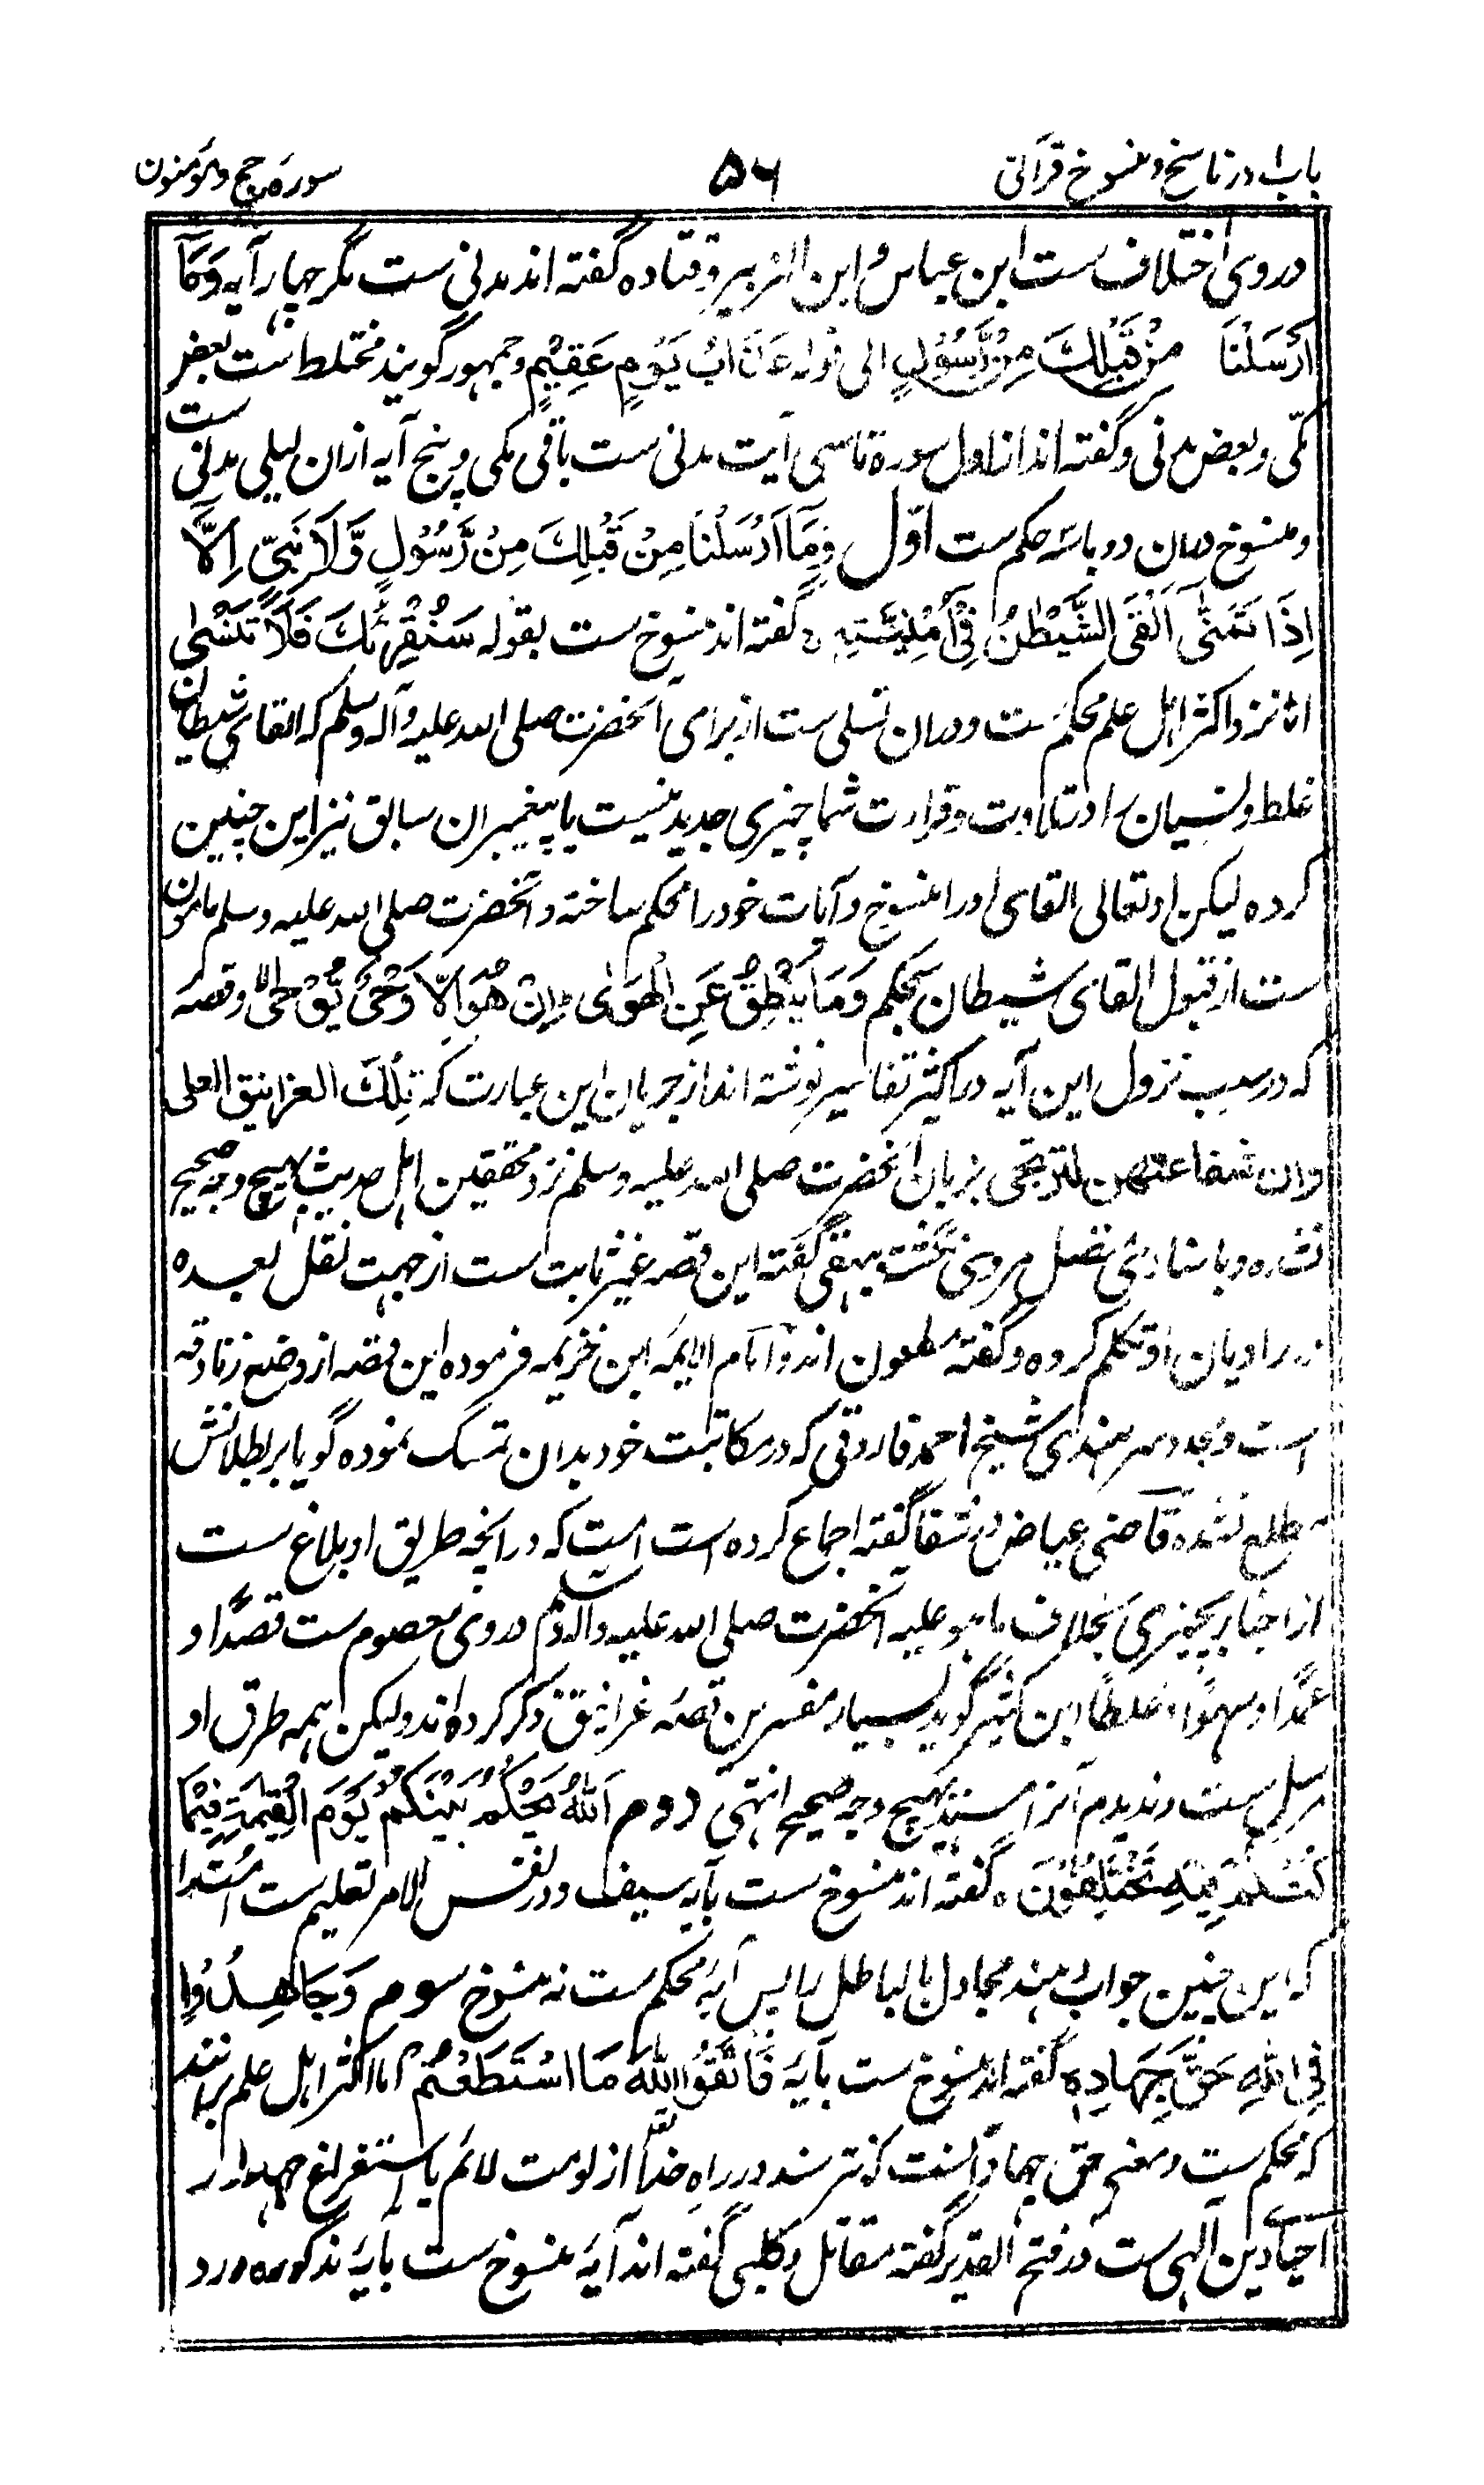 باب ۱ در ناسخ و منسوخ قرآنی ۵۶ سورۀ حج و المؤمنون
در وی اختلاف ست ابن عباس و ابن الزبیر و قتاده گفته اند مدنی ست مگر چهار آیه وَمَآ
اَرْسَلْنَا مِنْ قَبْلِكَ مِنْ رَّسُوْلٍ الی قوله عَذَابُ يَوْمٍ عَقِيْمٍ و جمهور گویند مختلط ست بعض
مکی و بعض مدنی و گفته اند از اول سوره تا سی آیت مدنی ست باقی مکی و پنج آیه ازان لیلی مدنی ست
و منسوخ دران دو یا سه حکم ست اوّل وَمَآ اَرْسَلْنَا مِنْ قَبْلِكَ مِنْ رَّسُوْلٍ وَّلَا نَبِيٍّ اِلَّآ
اِذَا تَمَنّٰى اَلْقَى الشَّيْطٰنُ فِيْٓ اُمْنِيَّتِهٖ گفته اند منسوخ ست بقوله سَنُقْرِئُكَ فَلَا تَنْسٰى
اما نزد اکثر اهل علم محکم ست و دران تسلی ست از برای آنحضرت صلی الله علیه و آله وسلم که القای شیطان
غلط و نسیان را در تلاوت و قرارت شما چیزی جدید نیست با پیغمبران سابق نیز این چنین
کرده لیکن او تعالی القای او را منسوخ و آیات خود را محکم ساخته و آنحضرت صلی الله علیه وسلم مامون
ست از قبول القای شیطان بحکم وَمَا يَنْطِقُ عَنِ الْهَوٰى اِنْ هُوَ اِلَّا وَحْيٌ يُّوْحٰى و قصه
که در سبب نزول این آیه در اکثر تفاسیر نوشته اند از جریان این عبارت که تِلْكَ الغرانیق العلی
وان شفاعتهن لترتجی بزبان آنحضرت صلی الله علیه وسلم نزد محققین اهل حدیث بهیچ وجه صحیح
نشده و باسنادی متصل مروی نگشته بیهقی گفته این قصه غیر ثابت ست از جهت نقل بعده
در راویان او تکلم کرده و گفته مطعون اند و امام الایمه ابن خزیمه فرموده این قصه از وضع زنادقه
است و مجدد سرهندی شیخ احمد فاروقی که در مکاتبت خود بدان تمسک نموده گویا بر بطلانش
مطلع نشده قاضی عیاض در شفا گفته اجماع کرده است امت که در آنچه طریق او بلاغ ست
از اخبار بچیزی بخلاف ما هو علیه آنحضرت صلی الله علیه و آله وسلم در وی معصوم ست قصدًا و
عمدًا و سهوًا و غلطًا ابن کثیر گوید بسیار مفسرین قصه غرانیق ذکر کرده اند ولیکن همه طرق او
مرسل ست و ندیدم آنرا مسند بهیچ وجه صحیح انتهی دوم اَللّٰهُ يَحْكُمُ بَيْنَكُمْ يَوْمَ الْقِيٰمَةِ فِيْمَا
كُنْتُمْ فِيْهِ تَخْتَلِفُوْنَ گفته اند منسوخ ست بآیه سیف و در نفس الامر تعلیم ست امت را
که این چنین جواب دهند مجادل بالباطل را پس آیه محکم ست نه منسوخ سوم وَجَاهِدُوْا
فِي اللّٰهِ حَقَّ جِهَادِهٖ گفته اند منسوخ ست بآیه فَاتَّقُوا اللّٰهَ مَا اسْتَطَعْتُمْ اما اکثر اهل علم برانند
که محکم ست و معنی حق جهاد آنست که نترسند در راه خدا از لومت لائم یا استفراغ جهد در
احیای دین الهی ست در فتح القدیر گفته مقاتل و کلبی گفته اند آیه منسوخ ست بآیه مذکوره و رد